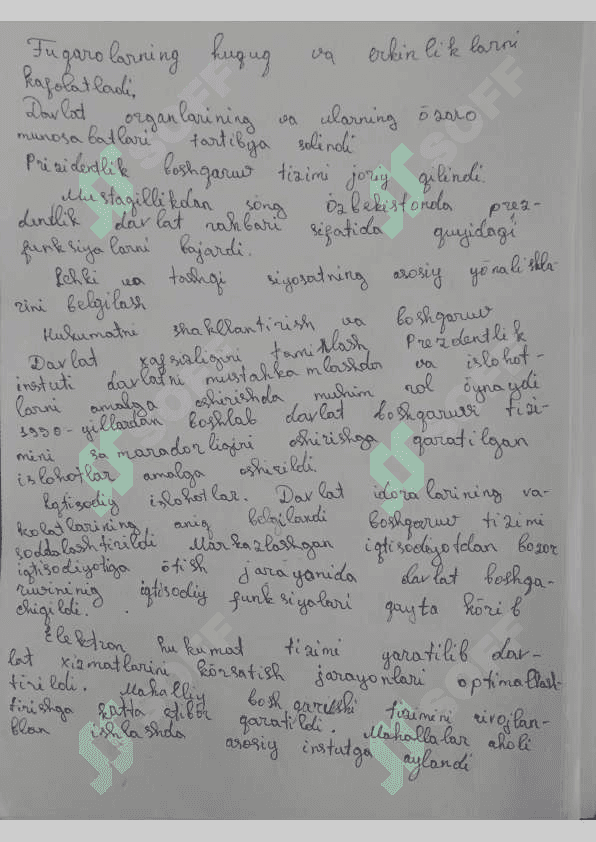 Fuqarolarning huquq va erkinliklarni
kafolatladi,
Davlat organlarining va ularning õzaro
munosabatlari tartibga solindi
Prizidentlik boshqaruv tizimi joriy qilindi.
Mustaqillikdan sòng Õzbekistonda prez-
dentlik davlat rahbari sifatida quyidagi
funksiyalarni bajardi.
Ichki va tashqi siyosatning asosiy yõnalishla-
rini belgilash
Hukumatni shakllantirish va boshqaruv
Davlat xafsizligini taminlash Prezdentlik
instuti davlatni mustahkamlashda va islohot-
larni amalga oshirishda muhim rol õynaydi
1990-yillardan boshlab davlat boshqaruvi tizi-
mini samaradorligini oshirishga qaratilgan
islohotlar amalga oshirildi.
Iqtisodiy islohotlar. Davlat idoralarining va-
kolatlarining aniq belgilandi boshqaruv tizimi
soddalashtirildi Markazlashgan iqtisodiyotdan bozor
iqtisodiyotiga õtish jarayonida davlat boshqa-
ruvining iqtisodiy funksiyalari qayta kõrib
chiqildi.
Elektron hukumat tizimi yaratilib dav-
lat xizmatlarini kõrsatish jarayonlari optimallash-
tirildi. Mahalliy boshqaruvni tizimini rivojlan-
tirishga katta etibor qaratildi. Mahallalar aholi
blan ishlashda asosiy instutga aylandi
SOFF
SOFF
SOFF
SOFF
SOFF
SOFF